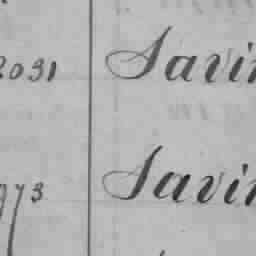 2031 Savin
973 Savin